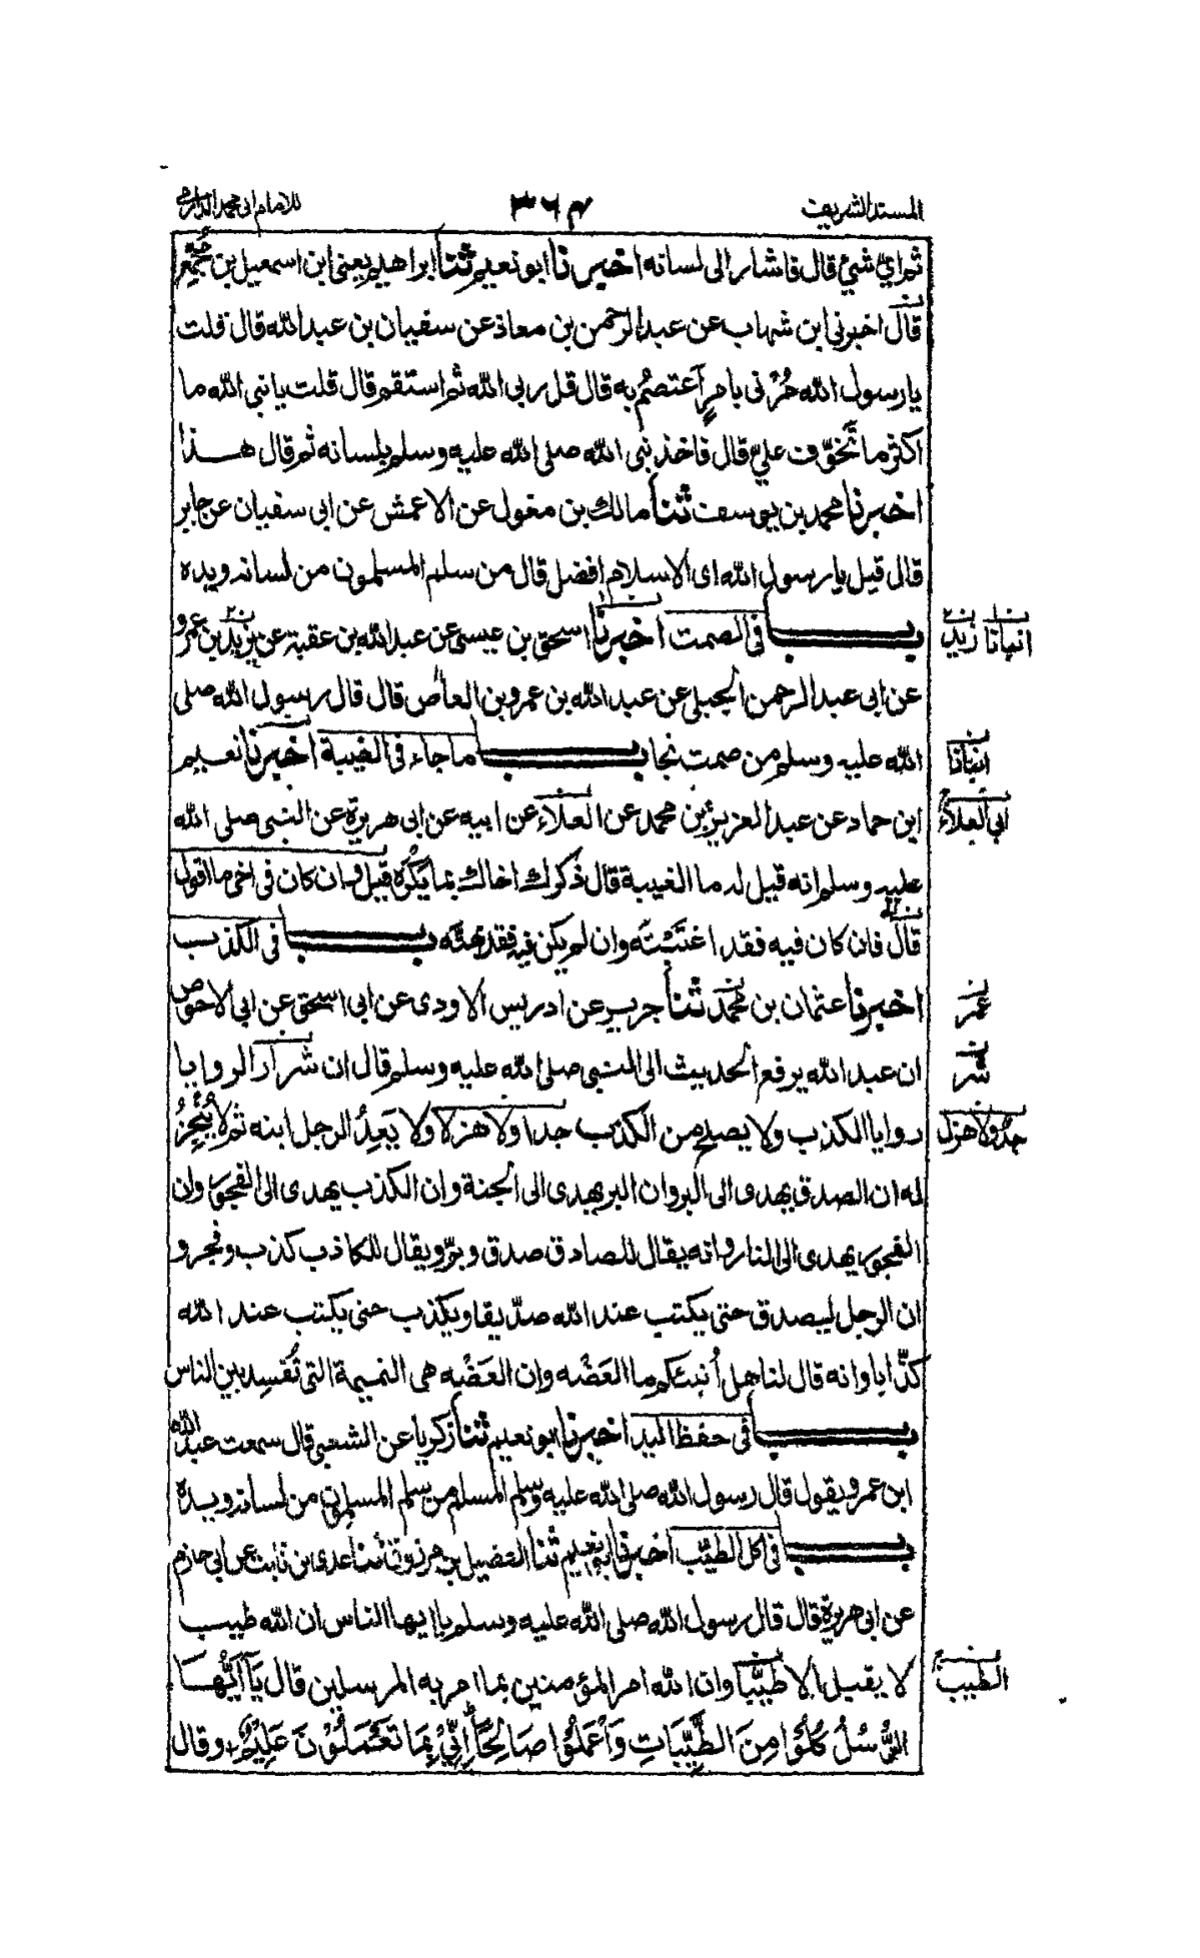 المسند الشريف ٣٦٤ للامام ابى محمد الدارمى
ثم اىّ شئ قال فاشار الى لسانه اخبرنا ابو نعيم ثنا ابراهيم يعنى ابن اسمعيل بن مُجَمِّع
قال اخبرنى ابن شهاب عن عبد الرحمن بن معاذ عن سفيان بن عبد الله قال قلت
يا رسول الله مُرْنى بامرٍ اَعتصمُ به قال قل ربى الله ثم استقم قال قلت يا نبى الله ما
اكثر ما تَخَوَّف علىّ قال فاخذ نبى الله صلى الله عليه وسلم بلسانه ثم قال هذا
اخبرنا محمد بن يوسف ثنا مالك بن مغول عن الاعمش عن ابى سفيان عن جابر
قال قيل يا رسول الله اى الاسلام افضل قال من سلم المسلمون من لسانه ويده
باب فى الصمت اخبرنا اسحق بن عيسى عن عبد الله بن عقبة عن يزيد بن عمرو
انبانا زيد
عن ابى عبد الرحمن الحبلى عن عبد الله بن عمرو بن العاص قال قال رسول الله صلى
الله عليه وسلم من صمت نجا باب ما جاء فى الغيبة اخبرنا نعيم
انبانا
ابن حماد عن عبد العزيز بن محمد عن العلاء عن ابيه عن ابى هريرة عن النبى صلى الله
ابى العلاء
عليه وسلم انه قيل له ما الغيبة قال ذكرك اخاك بما يَكْرَه قيل وان كان فى اخى ما اقول
قال فان كان فيه فقد اغتَبْتَه وان لم يكن فيه فقد بهتَّه باب فى الكذب
اخبرنا عثمان بن محمد ثنا جرير عن ادريس الاودى عن ابى اسحق عن ابى الاحوص
عمر
ان عبد الله يرفع الحديث الى النبى صلى الله عليه وسلم قال ان شرار الروايا
شر
روايا الكذب ولا يصلح من الكذب جدا ولا هزلا ولا يَعِدُ الرجل ابنه ثم لا يُنْجِزُ
جدٌ ولا هزل
له ان الصدق يهدى الى البر وان البر يهدى الى الجنة وان الكذب يهدى الى الفجور وان
الفجور يهدى الى النار وانه يقال للصادق صدق وبرّ ويقال للكاذب كذب وفجر و
ان الرجل ليصدق حتى يكتب عند الله صدّيقا ويكذب حتى يكتب عند الله
كذّابا وانه قال لنا هل اُنبئكم ما العَضْه وان العَضْه هى النميمة التى تُفسِد بين الناس
باب فى حفظ اليد اخبرنا ابو نعيم ثنا زكريا عن الشعبى قال سمعت عبد الله
ابن عمرو يقول قال رسول الله صلى الله عليه وسلم المسلم من سلم المسلمون من لسانه ويده
باب فى اكل الطيّب اخبرنا ابو نعيم ثنا الفضيل بن مرزوق ثنا عدى بن ثابت عن ابى حازم
عن ابى هريرة قال قال رسول الله صلى الله عليه وسلم يا ايها الناس ان الله طيب
لا يقبل الا طيّبا وان الله امر المؤمنين بما امر به المرسلين قال يَآ اَيُّهَا
الطيبَ
الرُّسُلُ كُلُوْا مِنَ الطَّيِّبَاتِ وَاعْمَلُوْا صَالِحًا اِنِّىْ بِمَا تَعْمَلُوْنَ عَلِيْمٌ وقال